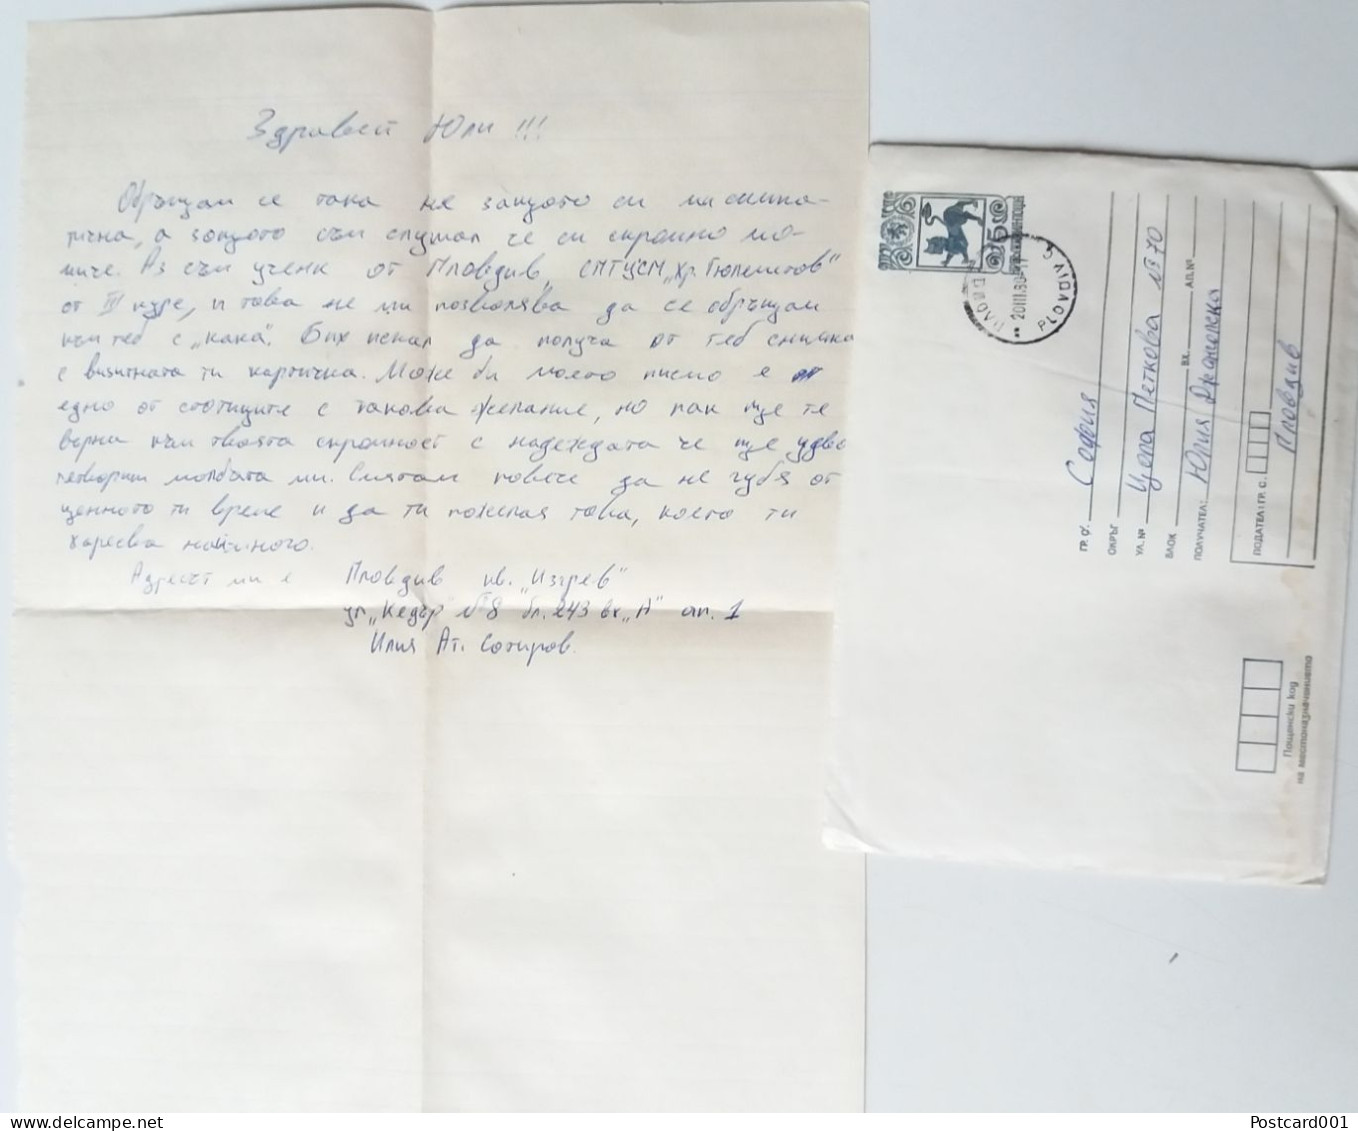 Здравей Юли !!!
Обръщам се така не защото си ми симпа-
тична, а защото съм слушал че си скромно мо-
миче. Аз съм ученик от Пловдив, СПТУСМ „Хр.
от III курс, и това не ми позволява да се обръщам
към теб с „кака". Бих искал да получа от теб снимка
с визитната ти картичка. Може би моето писмо е
едно от стотиците с такова желание, но пак ще те
върна към твоята скромност с надеждата че ще удво
летвориш молбата ми. Смятам повече да не губя от
ценното ти време и да ти пожелая това, което ти
харесва най-много.
Адресът ми е Пловдив кв. „Изгрев"
ул „Кедър" №8 бл. 243 вх „А" ап. 1
Илия Ат. Сотиров.
5
ПЛОВДИВ
20.III.90-11
PLOVDIV 5
ГР. С. София
ОКРЪГ
УЛ. № Цола Петкова № 70
БЛОК ВХ. АП. №
ПОЛУЧАТЕЛ: Юлия
ПОДАТЕЛ: ГР. С. Пловдив
Пощенски код
на местоназначението
delcampe.net
Postcard001